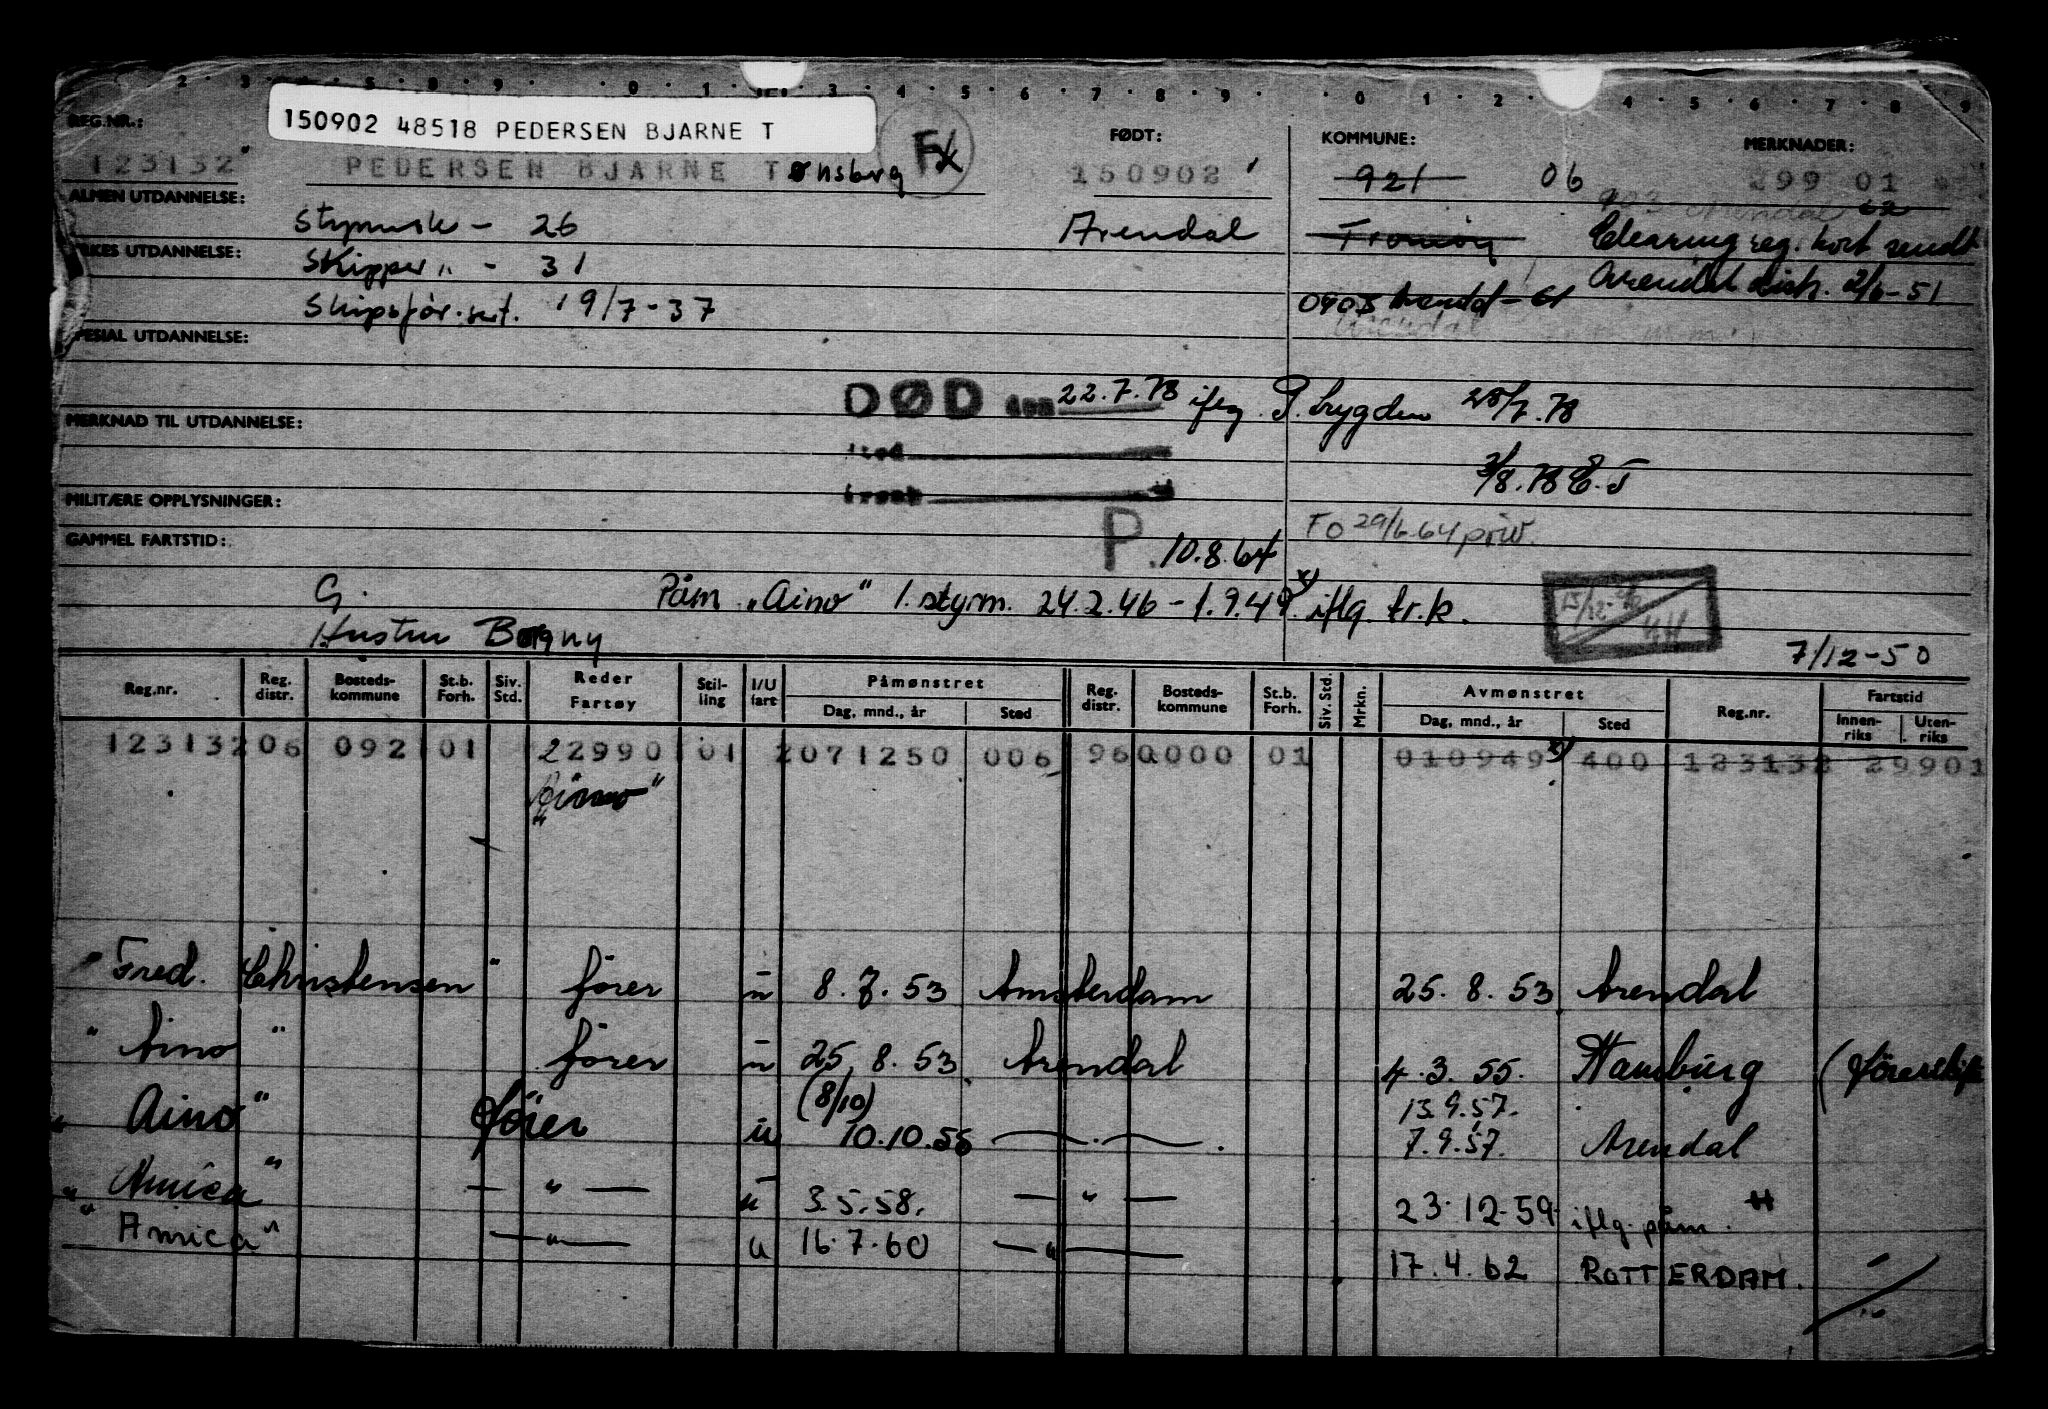 2 · 3 · 5 · 8 · 9 · 0 · 1 · 3 · 4 · 5 · 6 · 7 · 8 · 9 · 0 · 1 · 2 · 4 · 5 · 6 · 7 · 8 · 9
150902 48518 PEDERSEN BJARNE T
REG.NR.: FØDT: KOMMUNE: MERKNADER:
123132 PEDERSEN BJARNE Tønsberg 150902 921 06 299 01
ALMEN UTDANNELSE:
Styrmsk - 26 Arendal Tromøy Clearing reg. kort sendt
YRKES UTDANNELSE:
Skipper " - 31 Arendal distr. 2/6-51
Skipsfør.sert. 19/7-37 0903 Arendal - 61
SPESIAL UTDANNELSE:
DØD den 22.7.78 iflg. P. trygden 28/7.78
MERKNAD TIL UTDANNELSE:
sted
8.78 E.J
MILITÆRE OPPLYSNINGER:
årsak
FO 29/6.64 priv.
GAMMEL FARTSTID:
P. 10.8.64
G. Påm "Aino" 1. styrm. 24.2.46 - 1.9.49. x) iflg. tr.k.
Hustru Borgny 7/12-50
Reg.nr. Reg. distr. Bosteds-kommune St.b. Forh. Siv. Std. Reder Fartøy Stil-ling I/U fart Påmønstret Dag, mnd., år Sted Reg. distr. Bosteds-kommune St.b. Forh. Siv. Std. Mrkn. Avmønstret Dag, mnd., år Sted Reg.nr. Fartstid Innen-riks Uten-riks
123132 06 092 01 22990 01 2 071250 006 96 0000 01 010949 x) 400 123132 29901
"Aino"
"Fred. Christensen" fører u 8.7.53 Amsterdam 25.8.53 Arendal
"Aino" fører u 25.8.53 Arendal 4.3.55. Hamburg (førerskift
(8/10) 13.9.57.
"Aino" fører u 10.10.56 — . — . 7.9.57. Arendal
"Amica" — " — u 3.5.58. — " — 23.12.59 iflg. påm.
"Amica" — " — u 16.7.60 — " — 17.4.62 ROTTERDAM.